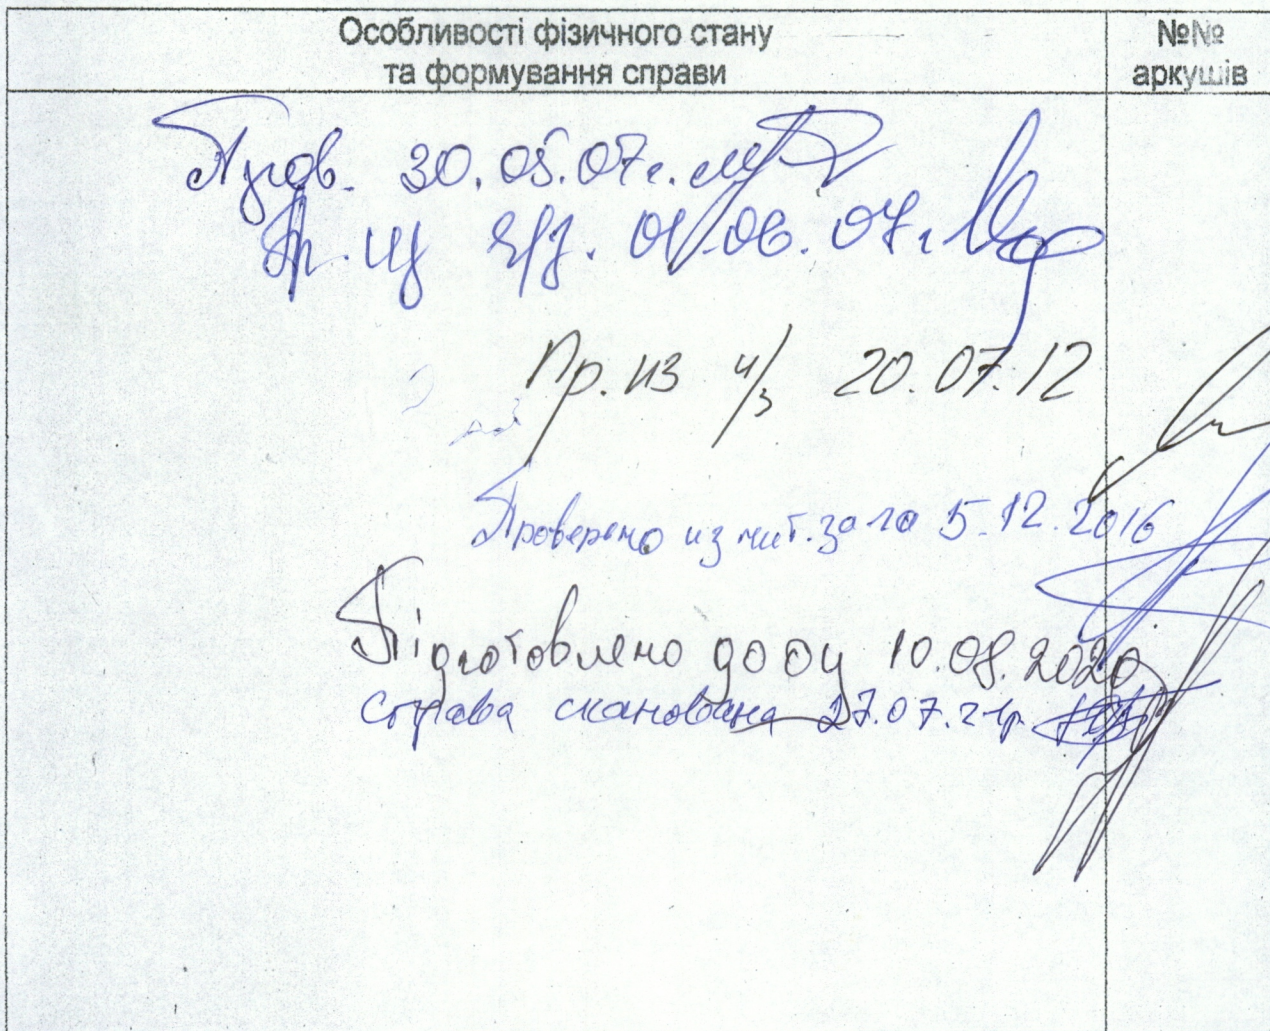 Особливості фізичного стану
та формування справи
№№
аркушів
30.05.07г.
01.06.07г.
Пр. из ч/з 20.07.12
Проверено из чит. зала 5.12.2016
Підготовлено до оц 10.08.2020
Справа сканована 27.07.21р.